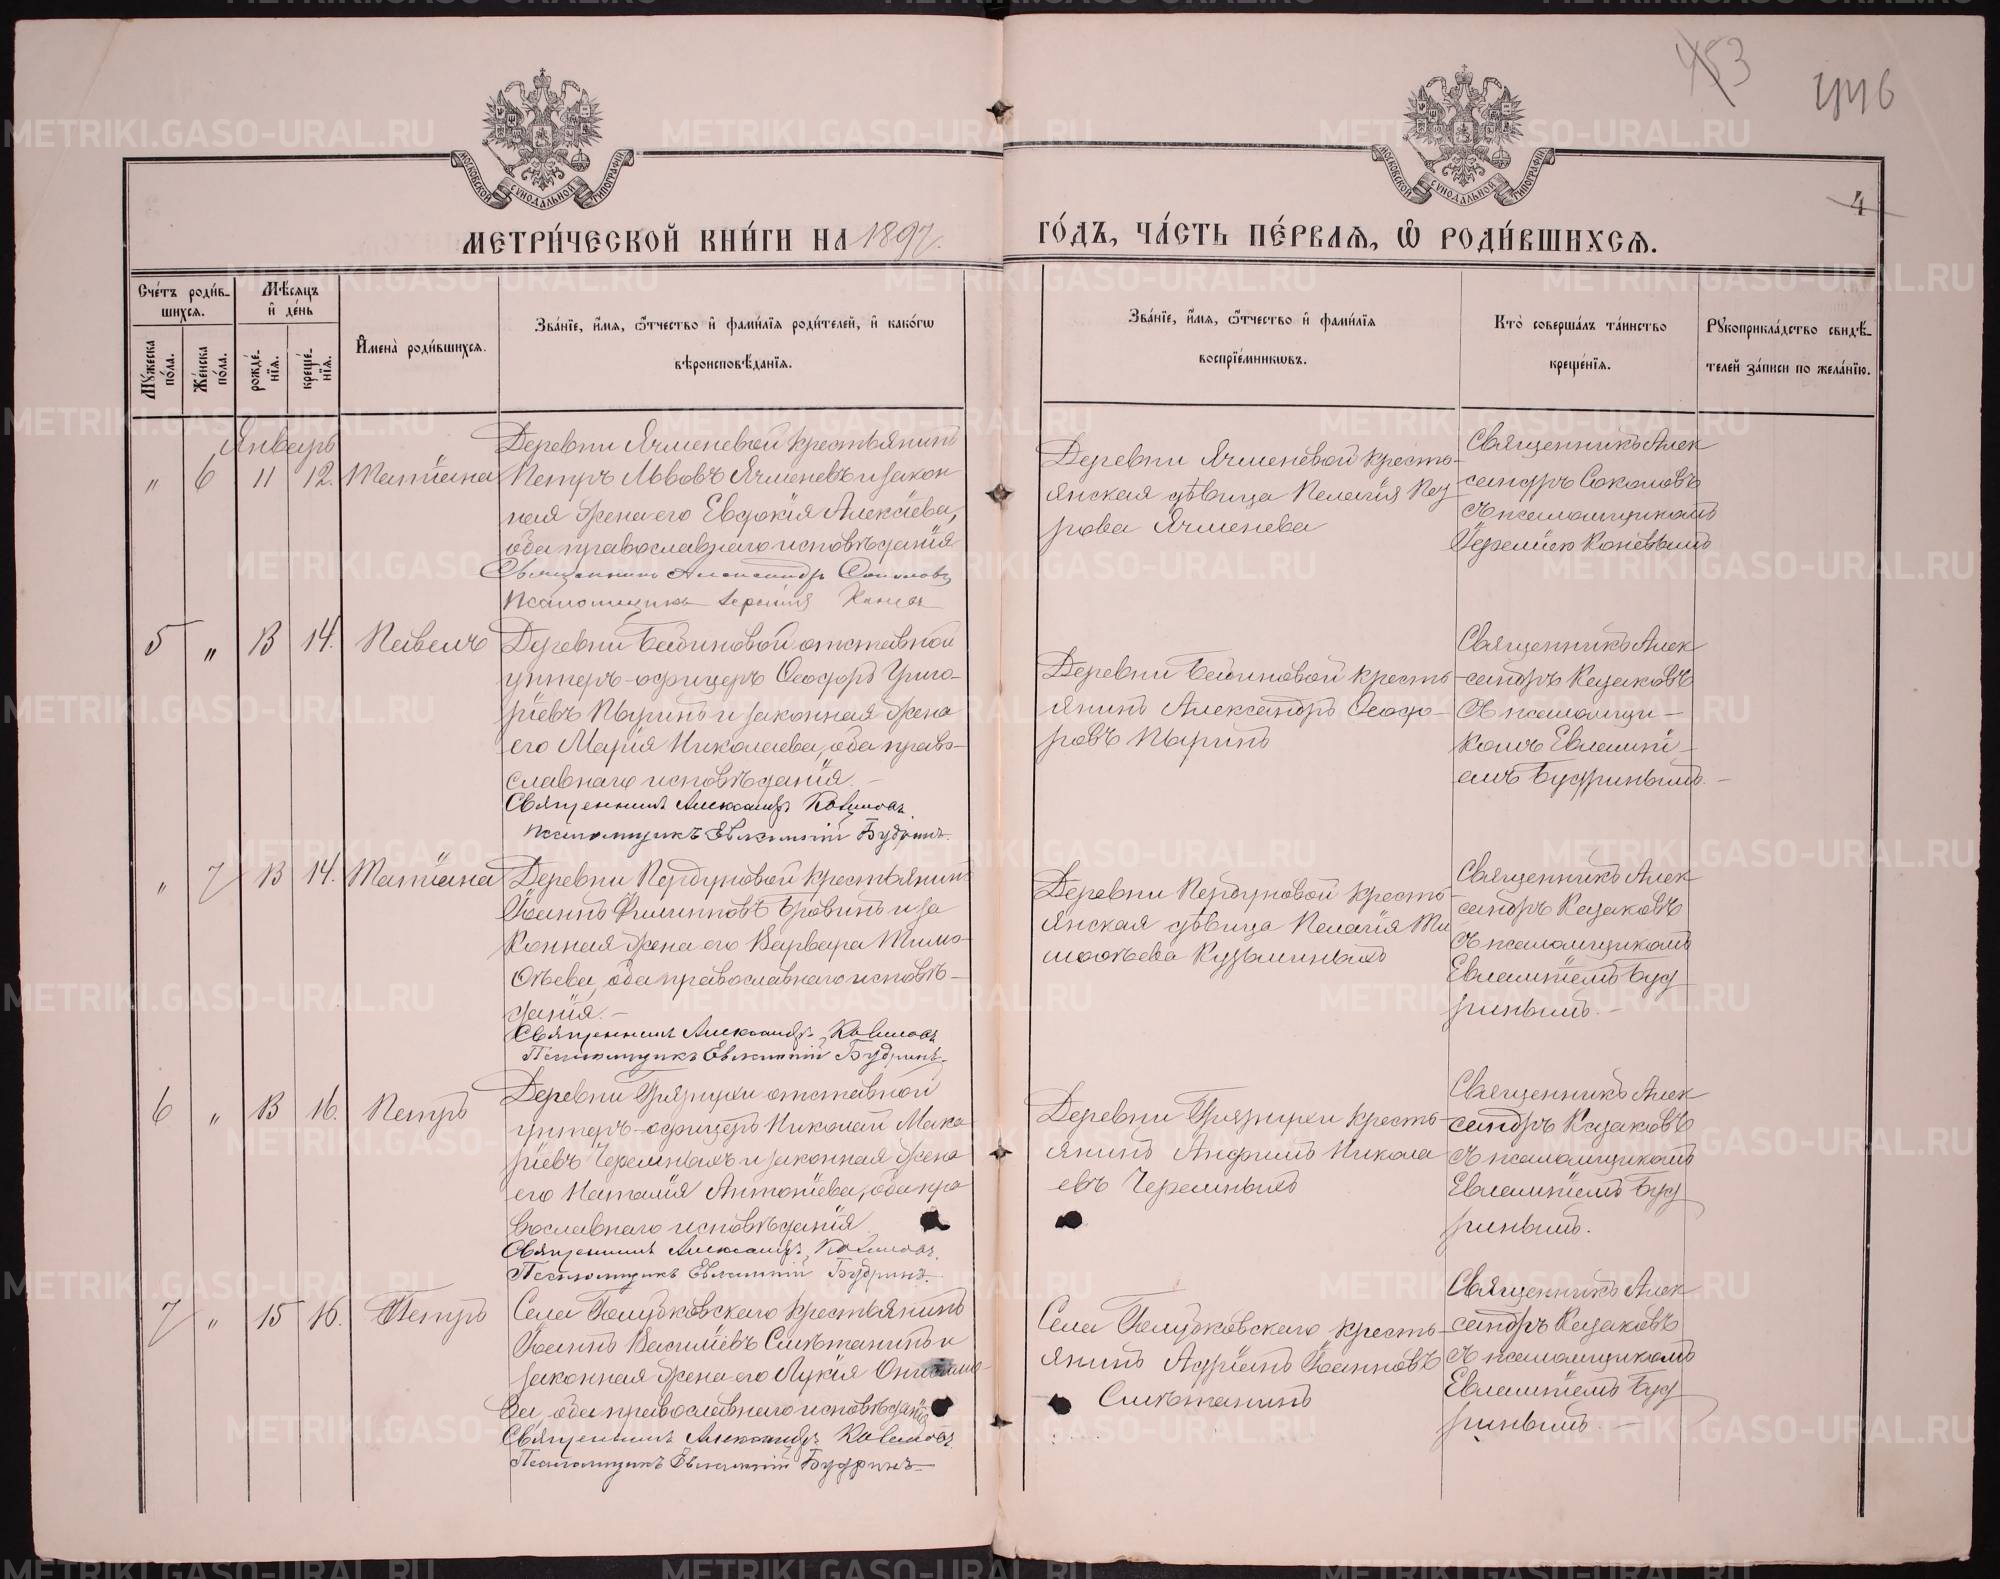 453
446
4
МОСКОВСКОЙ СѴНОДАЛЬНОЙ ТИПОГРАФІИ
МОСКОВСКОЙ СѴНОДАЛЬНОЙ ТИПОГРАФІИ
МЕТРИ́ЧЕСКОЙ КНИ́ГИ НА 1897.
ГО́ДЪ, ЧА́СТЬ ПЕ́РВАѦ, Ѽ РОДИ́ВШИХСѦ.
Сче́тъ роди́вшихсѧ.
Мꙋ́жеска по́ла.
Же́нска по́ла.
Мѣ́сѧцъ и҆ де́нь
рожде́нїѧ.
креще́нїѧ.
И҆мена̀ роди́вшихсѧ.
Зва́нїе, и҆́мѧ, ѻ҆́тчество и҆ фами́лїѧ роди́телей, и҆ како́гѡ
вѣроисповѣ́данїѧ.
Зва́нїе, и҆́мѧ, ѻ҆́тчество и҆ фами́лїѧ
воспрїе́мникѡвъ.
Кто̀ соверша́лъ та́инство
креще́нїѧ.
Рꙋкоприкла́дство свидѣ́-
телей за́писи по жела́нїю.
Январь
„ 6 11 12. Татіана
Деревни Ячменевой крестьянинъ
Петръ Львовъ Ячменевъ и закон
ная жена его Евдокія Алексіева,
оба православнаго исповѣданія
Священникъ Александръ Соколовъ
Псаломщикъ Іеремія Коневъ
Деревни Ячменевой кресть-
янская дѣвица Пелагія Пет
рова Ячменева
Священникъ Алек
сандръ Соколовъ
съ псаломщикомъ
Іереміею Коневымъ
5 „ 13 14. Павелъ
Деревни Бабиновой отставной
унтеръ-офицеръ Ѳеодоръ Григо-
ріевъ Пыринъ и законная жена
его Марія Николаева, оба право-
славнаго исповѣданія. –
Священникъ Александръ Казаковъ.
Псаломщикъ Евлампій Будринъ.
Деревни Бабиновой кресть
янинъ Александръ Ѳеодо-
ровъ Пыринъ
Священникъ Алек
-сандръ Казаковъ
съ псаломщи-
комъ Евлампі-
емъ Будринымъ. –
„ 7 13 14. Татіана
Іоаннъ Филипповъ
конная жена его Варвара Тимо-
ѳѣева, оба православнаго исповѣ-
данія. –
Священникъ Александръ Казаковъ
Псаломщикъ Евлампій Будринъ.
янская дѣвица Пелагія Ти
моѳѣева Кузьминыхъ
Священникъ Алек
сандръ Казаковъ
съ псаломщикомъ
Евлампіемъ Буд
ринымъ. –
6 „ 13 16. Петръ
Деревни Грязнухи отставной
унтеръ-офицеръ Николай Мака
ріевъ Черемныхъ и законная жена
его Наталія Антоніева, оба пра
вославнаго исповѣданія
Священникъ Александръ Казаковъ.
Псаломщикъ Евлампій Будринъ.
Деревни Грязнухи кресть-
янинъ Андрей Никола
евъ Черемныхъ
Священникъ Алек
сандръ Казаковъ
съ псаломщикомъ
Евлампіемъ Буд
ринымъ.
7 „ 15 16. Петръ
Села Голубковскаго крестьянинъ
Іоаннъ Василіевъ Смѣтанинъ и
законная жена его Лукія
ва, оба православнаго исповѣданія
Священникъ Александръ Казаковъ.
Псаломщикъ Евлампій Будринъ
Села Голубковскаго кресть-
янинъ Адріанъ Іоанновъ
Смѣтанинъ
Священникъ Алек
сандръ Казаковъ
съ псаломщикомъ
Евлампіемъ Буд
ринымъ. –
METRIKI.GASO-URAL.RU